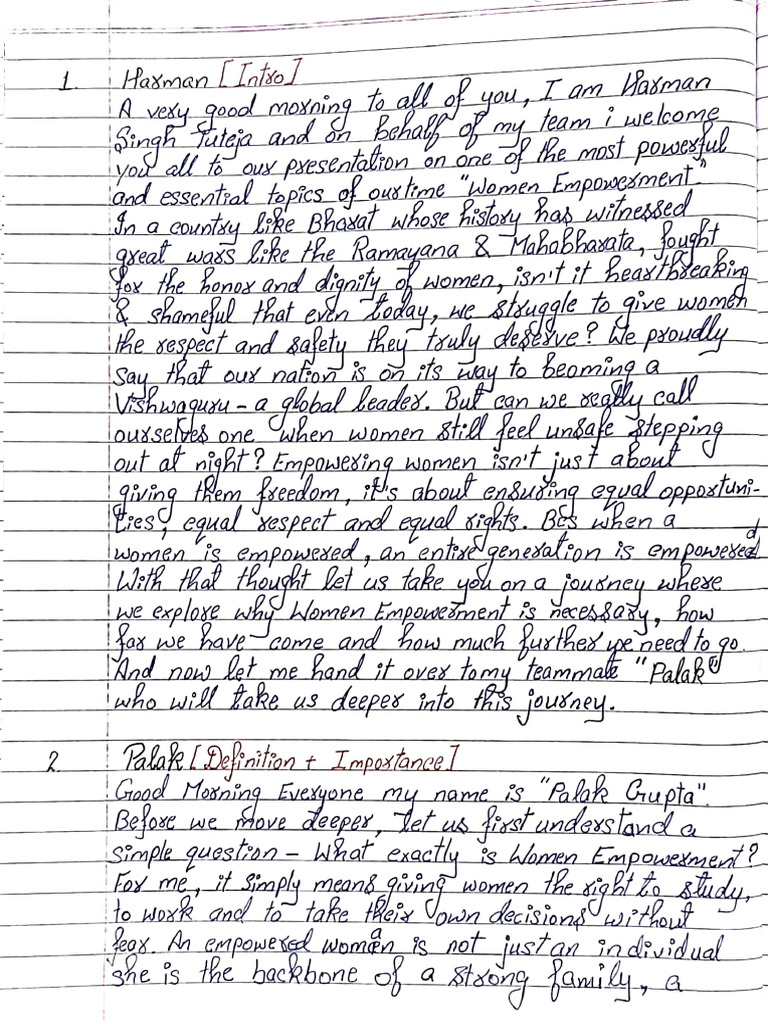 1. Harman [Intro]
A very good morning to all of you, I am Harman
Singh Tuteja and on behalf of my team i welcome
you all to our presentation on one of the most powerful
and essential topics of our time "Women Empowerment."
In a country like Bharat whose history has witnessed
great wars like the Ramayana & Mahabharata, fought
for the honor and dignity of women, isn't it heartbreaking
& shameful that even today, we struggle to give women
the respect and safety they truly deserve? We proudly
say that our nation is on its way to becoming a
Vishwaguru - a global leader. But can we really call
ourselves one when women still feel unsafe stepping
out at night? Empowering women isn't just about
giving them freedom, it's about ensuring equal opportuni-
ties, equal respect and equal rights. Bcs when a
women is empowered, an entire generation is empowered
With that thought let us take you on a journey where
we explore why Women Empowerment is necessary, how
far we have come and how much further we need to go.
And now let me hand it over to my teammate "Palak"
who will take us deeper into this journey.
2. Palak [Definition + Importance]
Good Morning Everyone my name is "Palak Gupta".
Before we move deeper, let us first understand a
simple question - What exactly is Women Empowerment?
For me, it simply means giving women the right to study,
to work and to take their own decisions without
fear. An empowered woman is not just an individual
she is the backbone of a strong family, a